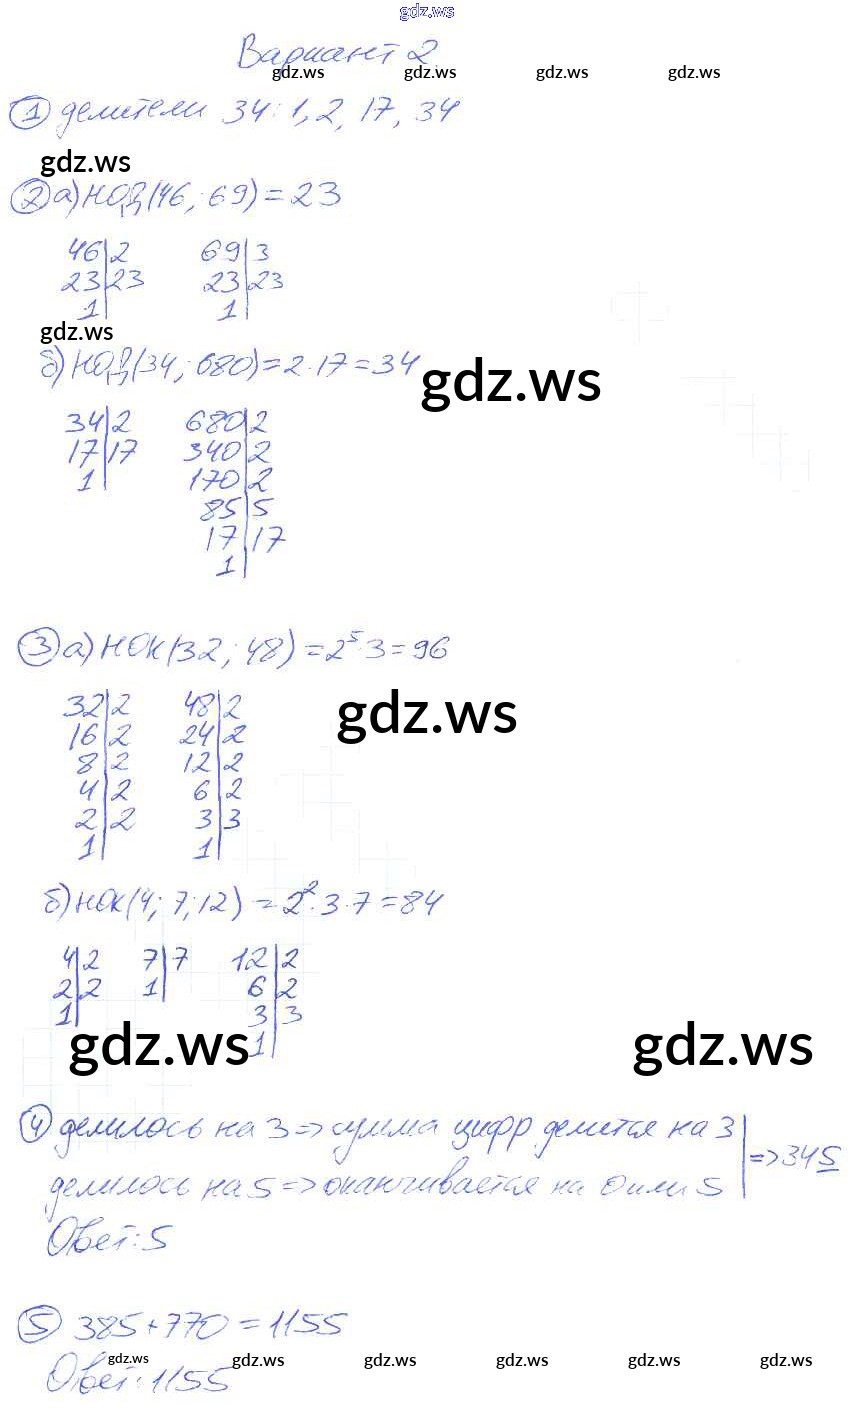 gdz.ws
Вариант 2
gdz.ws gdz.ws gdz.ws gdz.ws
① делители 34: 1, 2, 17, 34
gdz.ws
② а) НОД(46; 69) = 23
46|2 69|3
23|23 23|23
1| 1|
gdz.ws
б) НОД(34; 680) = 2·17 = 34
gdz.ws
34|2 680|2
17|17 340|2
1| 170|2
85|5
17|17
1|
③ а) НОК(32; 48) = 2⁵·3 = 96
32|2 48|2
gdz.ws
16|2 24|2
8|2 12|2
4|2 6|2
2|2 3|3
1| 1|
б) НОК(4; 7; 12) = 2²·3·7 = 84
4|2 7|7 12|2
2|2 1| 6|2
1| 3|3
1|
gdz.ws gdz.ws
④ делилось на 3 => сумма цифр делится на 3
делилось на 5 => оканчивается на 0 или 5 | => 345
Ответ: 5
⑤ 385 + 770 = 1155
Ответ: 1155
gdz.ws gdz.ws gdz.ws gdz.ws gdz.ws gdz.ws